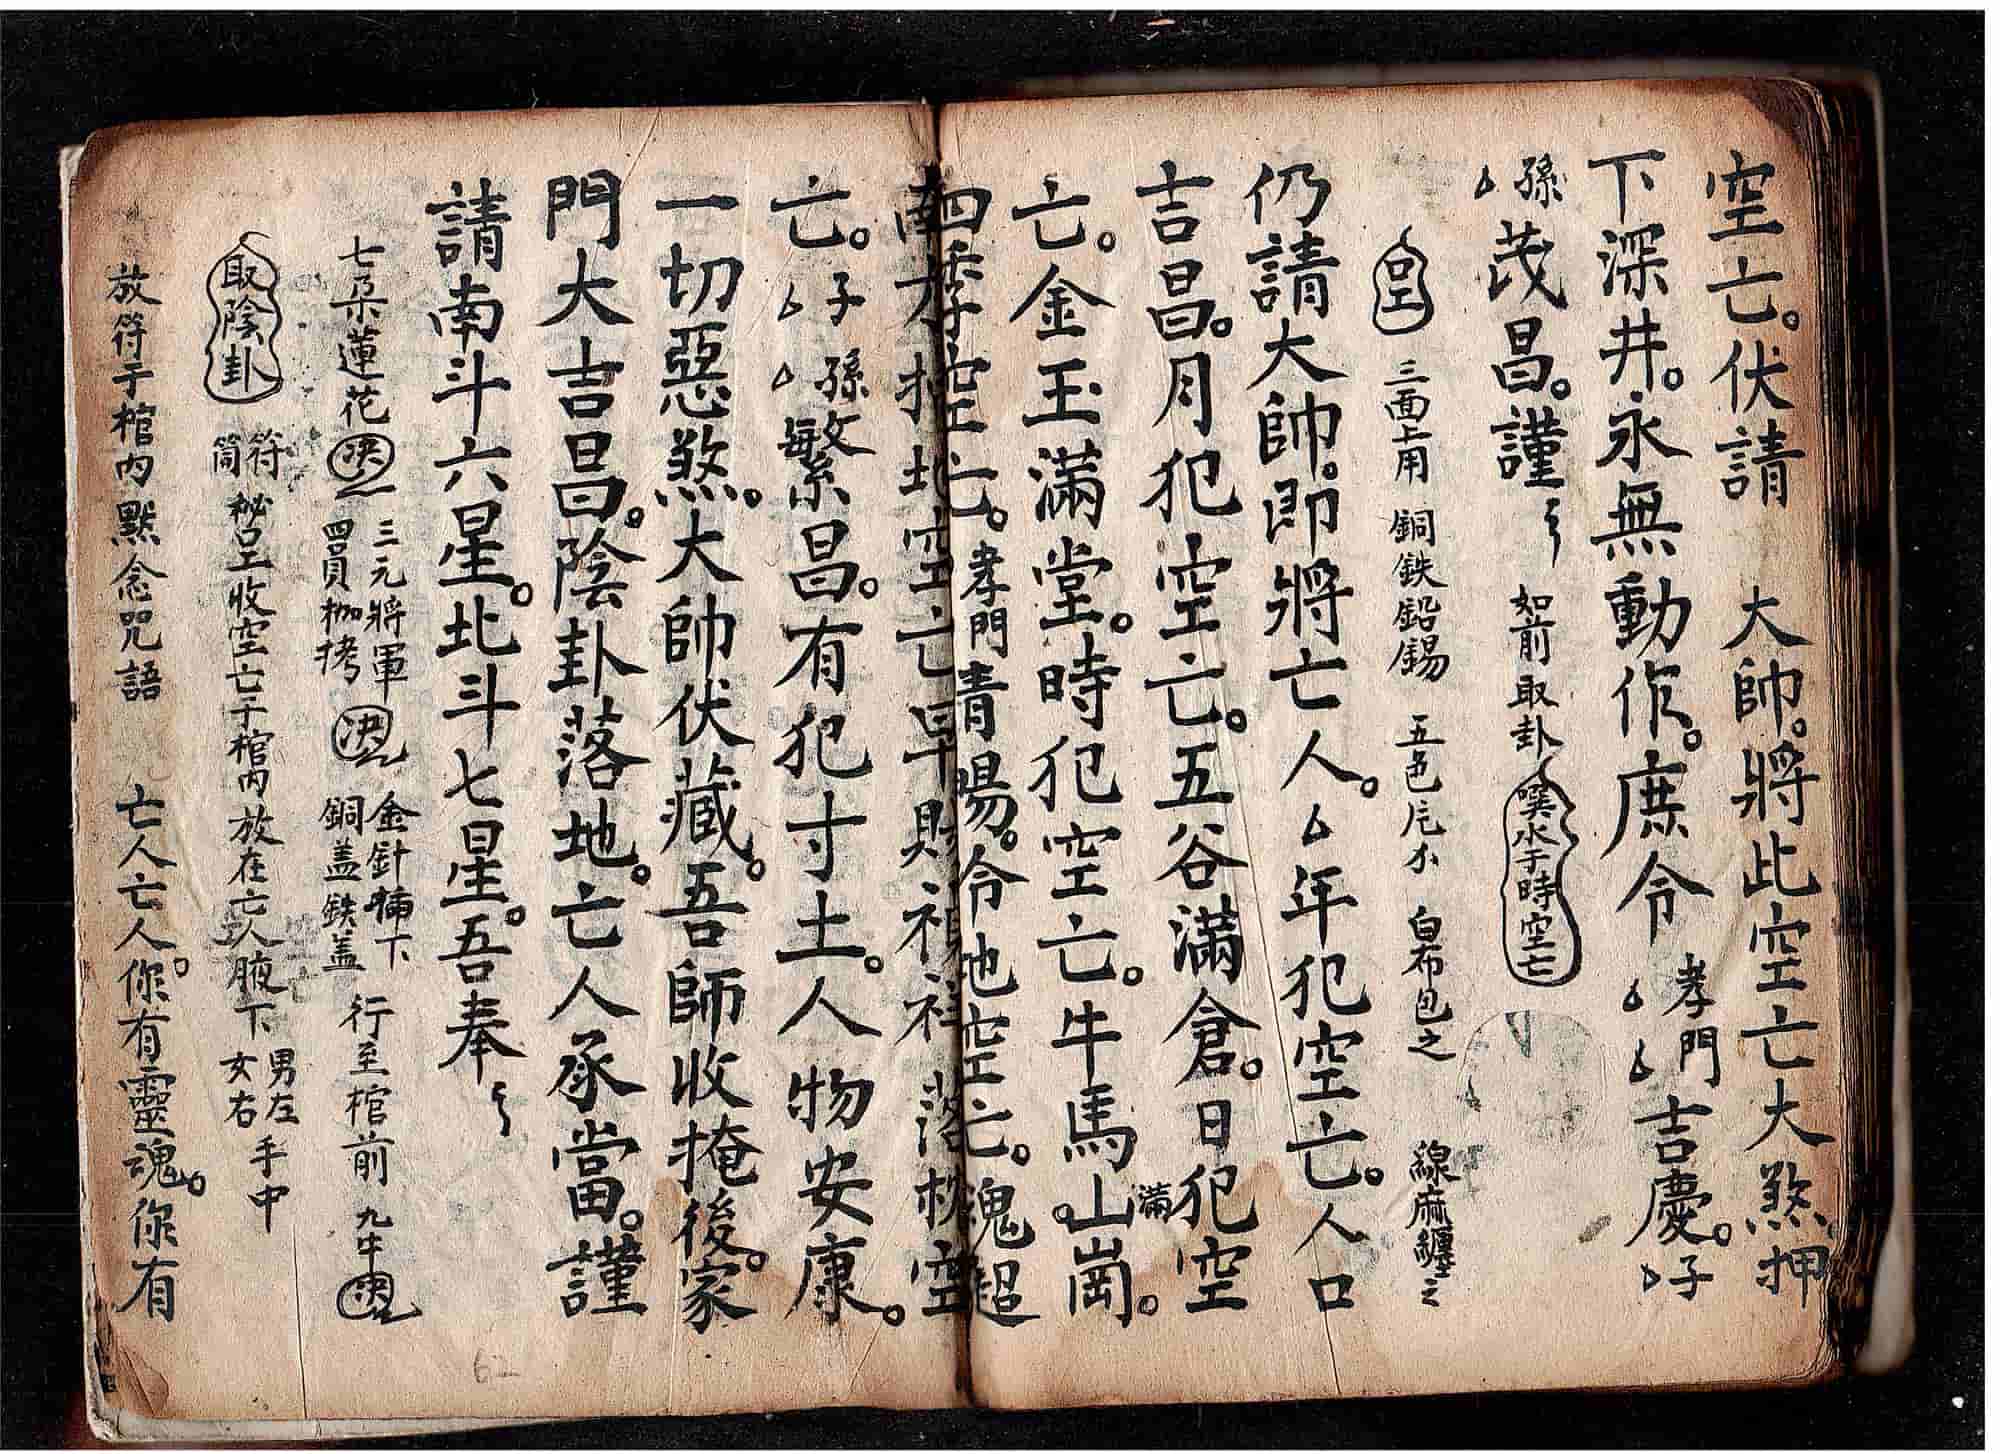 空亡。伏請 大帥。將此空亡大煞。押
下深井。永無動作。庶令 孝門 吉慶。子
孫茂昌。謹 如前取卦 噀水于時空亡
三面上用 銅鉄鉛錫 五色尨小 白布包之 線麻纏之
仍請大帥。即將亡人。年犯空亡。人口
吉昌。月犯空亡。五谷滿倉。日犯空
亡。金玉滿堂。時犯空亡。牛馬滿山崗。
四季空亡。孝門青陽。令地空亡。魂超
南方 地空亡早 落 空
亡。子孫繁昌。有犯寸土。人物安康。
一切惡煞。大帥伏藏。吾師收掩後。家
門大吉昌。陰卦落地。亡人承當。謹
請南斗六星。北斗七星。吾奉
七朵蓮花 決 三元將軍 四員枷拷 決 金針插下 銅盖鉄盖 行至棺前 九牛決
取陰卦 符筒 秘 收空亡于棺内放在亡人腋下 男左女右 手中
放符于棺内默念咒語 亡人亡人。你有靈魂。你有
62